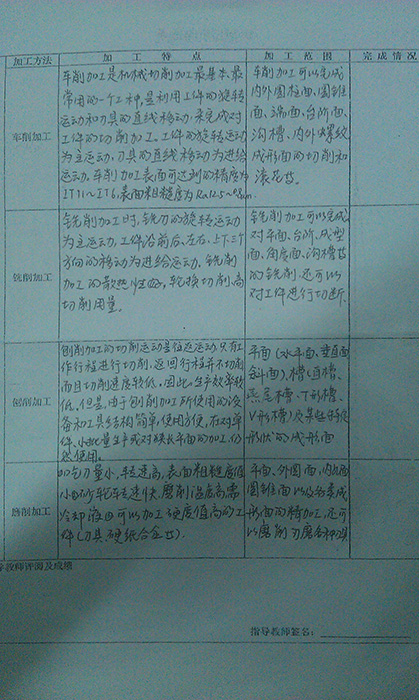 加工方法 加工特点 加工范围 完成情况
车削加工
车削加工是机械切削加工最基本、最
常用的一个工种,是利用工件的旋转
运动和刀具的直线移动来完成对
工件的切削加工。工件的旋转运动
为主运动,刀具的直线移动为进给
运动。车削加工表面可达到的精度为
IT11~IT6,表面粗糙度为Ra12.5~0.8μm
车削加工可以完成
内外圆柱面、圆锥
面、端面、台阶面、
沟槽、内外螺纹
成形面的切削和
滚花等。
铣削加工
铣削加工时,铣刀的旋转运动
为主运动,工件沿前后、左右、上下三个
方向的移动为进给运动。铣削
加工的散热性好,轮换切削,高
切削用量。
铣削加工可以完成
对平面、台阶、成型
面、角度面、沟槽等
的铣削,还可以
对工件进行切断。
刨削加工
刨削加工的切削运动是往返运动,只有工
作行程进行切削,返回行程并不切削
而且切削速度较低。因此,生产效率较
低。但是,由于刨削加工所使用的设
备和工具结构简单,使用方便,在对单
件、小批量生产或对狭长平面的加工,仍
然使用。
平面(水平面、垂直面
斜面),槽(直槽、
燕尾槽、T形槽、
V形槽)及某些母线
形状的成形面
磨削加工
加工刀量小,转速高,表面粗糙度值
小的砂轮转速快,磨削温度高需
冷却液 可以加工硬度值高的工
件(刀具、硬纸合金等)。
平面、外圆面、内圆面
圆锥面以及各类成
形面的精加工,还可
以磨削刃磨各种刀具
导教师评阅及成绩
指导教师签名: